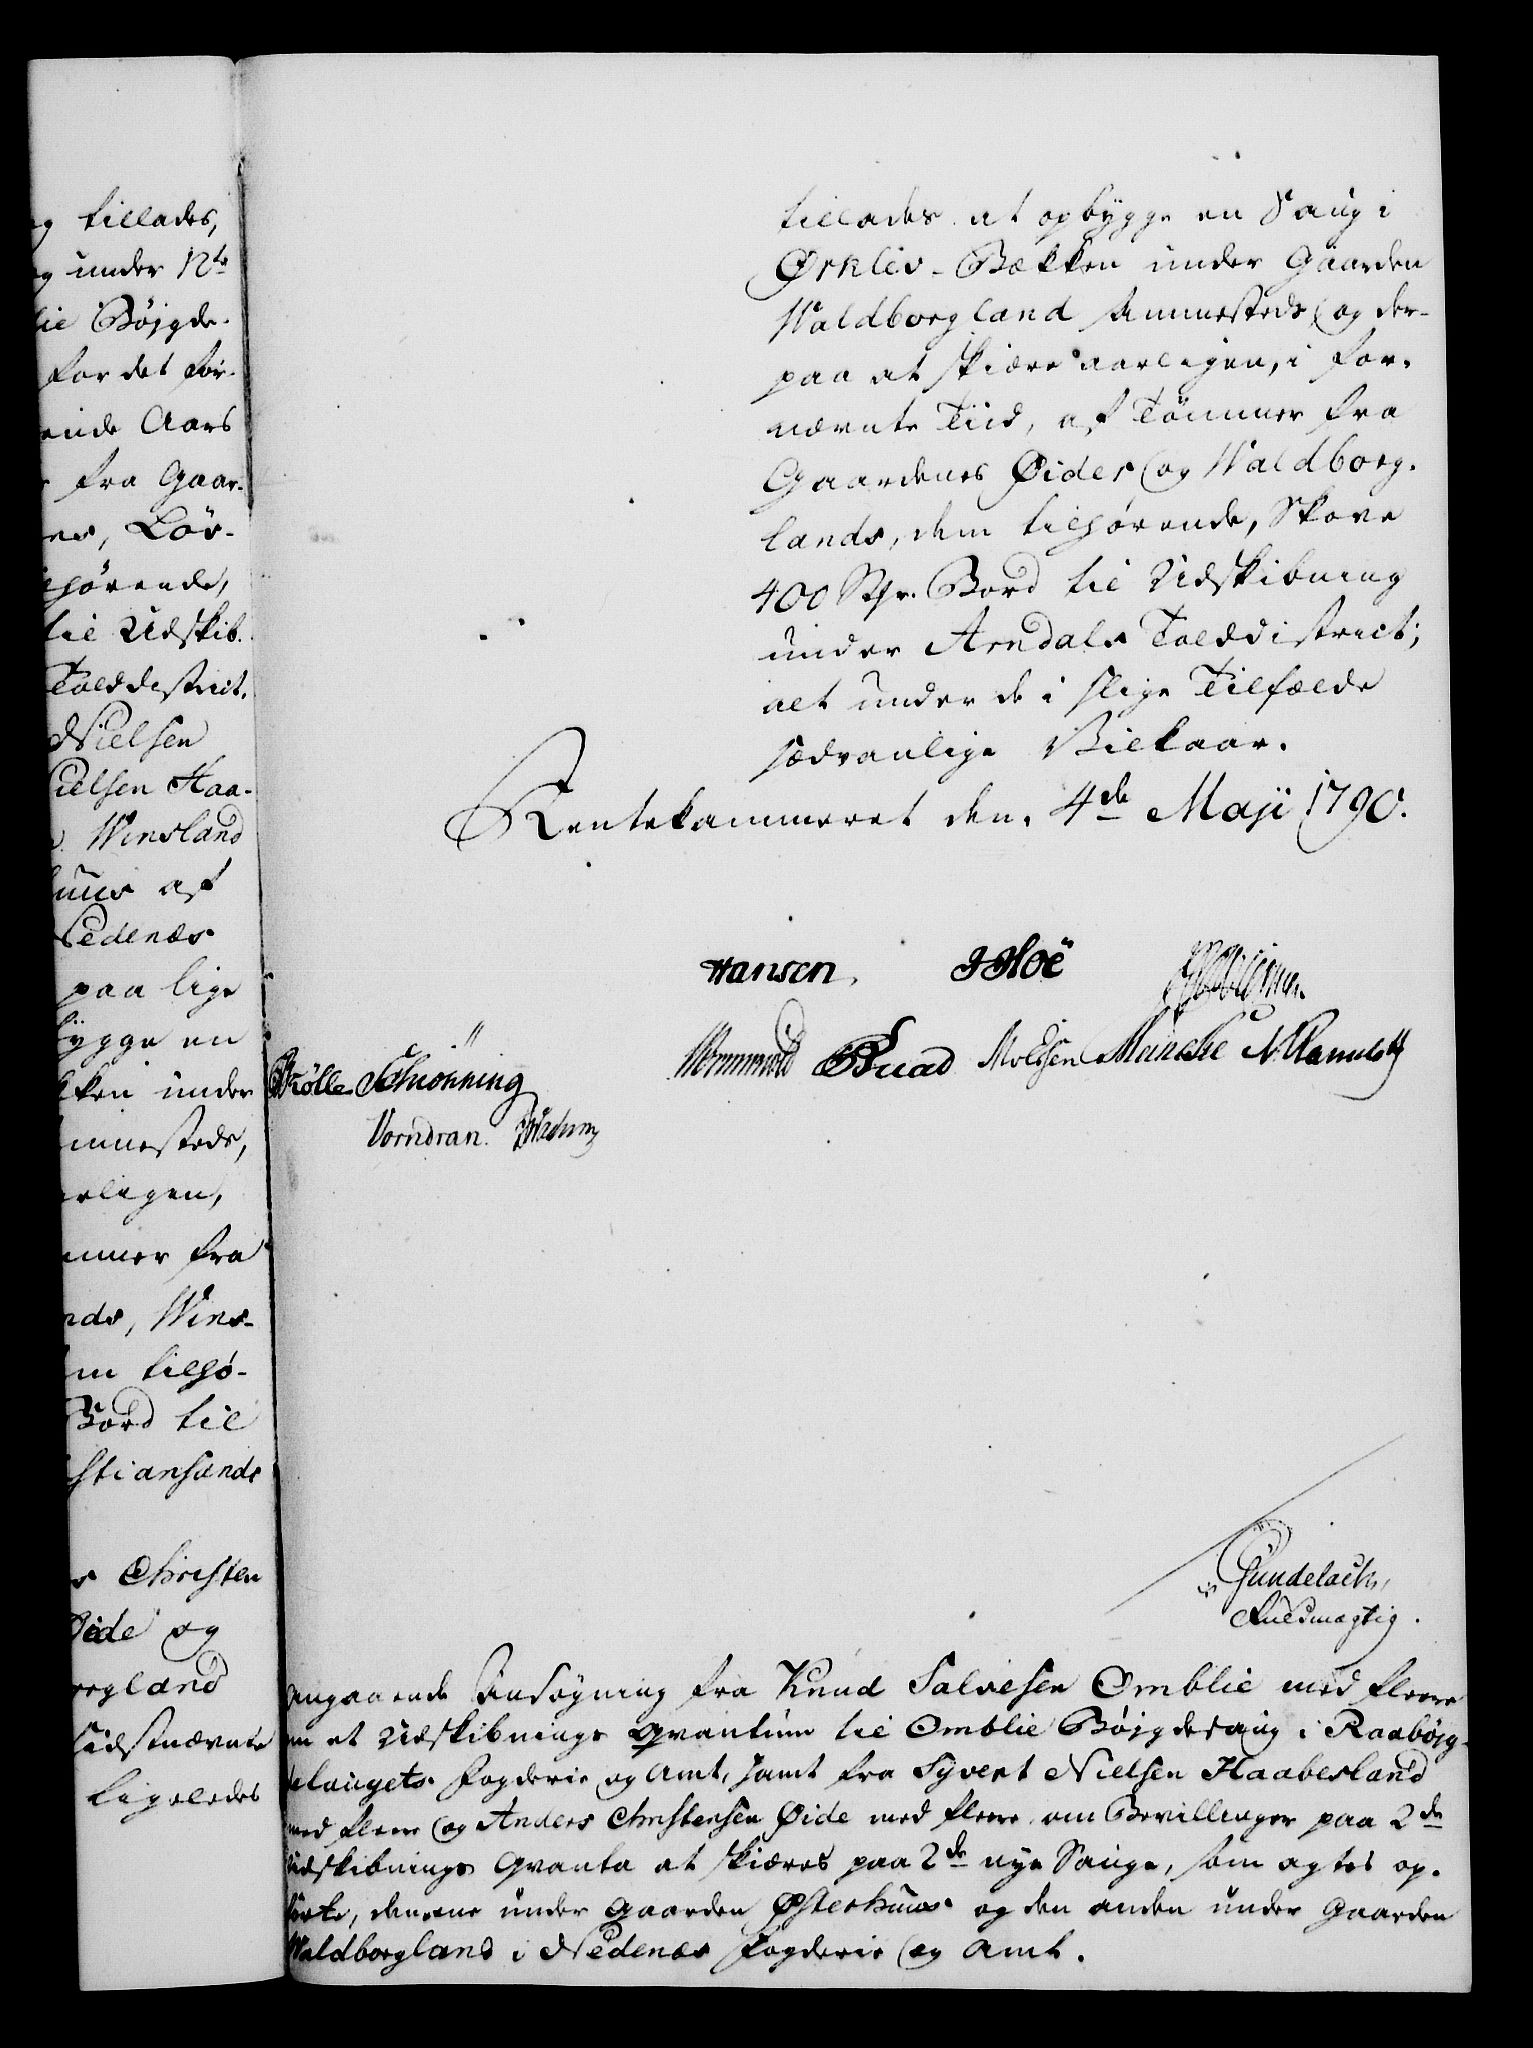 g tillades,
g under Nte
lie Böjgde-
for det för-
ende Aars
fra Gaar-
es, Löv-
hörende,
til Udskib-
Tolddistrict.
Nielsen
ielsen Haa-
Winsland
huus af
Nedenæs
paa lige
bygge en
kken under
mmesteds,
arligen,
mmer fra
nds, Wins-
m tilhö-
Bord til
stiansands
s Christen
Øide og
orgland
sidstnævnte
ligeledes
tillades at opbygge en Saug i
Ørklev-Bækken under Gaarden
Waldborgland sammesteds, og der-
paa at skiære aarligen, i for-
nævnte Tiid, af Tömmer fra
Gaardenes Øides og Waldborg-
lands, dem tilhörende, Skove
400 Bord til Udskibning
under Arndals Tolddistrict;
alt under de i slige Tilfælde
sædvanlige Vilkaar.
Rentekammeret den 4de Maji 1790.
Hansen. JHoë
Wormwold Buad Moldsen Meincke
Krölle Schiönning
Vorndran.
Gundelach,
Fuldmægtig.
angaaende Ansögning fra Knud Salvesen Omblie med fleere
om et Udskibnings Qvantum til Omblie Böjgdesaug i Raabögg-
delaugets Fogderie og Amt, samt fra Syvert Nielsen Haabesland
med fleere og Anders Christensen Øide med fleere om Bevillinger paa 2de
Udskibnings Qvanta at skiæres paa 2de nye Sauge, som agtes op-
förte, den eene under Gaarden Østerhuus og den anden under Gaarden
Waldborgland i Nedenæs Fogderie og Amt.